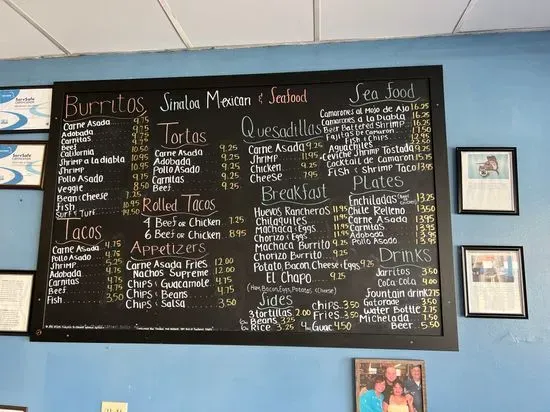 Sinaloa Mexican & Seafood
Burritos
Carne Asada 9.75
Adobada 9.75
Carnitas 9.75
Beef 9.75
California 10.50
Shrimp a la diabla 10.95
Shrimp 10.95
Chicken 9.75
Pollo Asado 9.75
Veggie 8.50
Bean & Cheese 7.25
Fish 10.95
Surf & Turf 14.50
Tacos
Carne Asada 4.75
Pollo Asado 4.75
Shrimp 5.25
Adobada 4.75
Carnitas 4.75
Beef 4.75
Fish 3.50
Tortas
Carne Asada 9.25
Adobada 9.25
Pollo Asado 9.25
Carnitas 9.25
Beef 9.25
Rolled Tacos
4 Beef or Chicken 7.25
6 Beef or Chicken 8.95
Appetizers
Carne Asada Fries 12.00
Nachos Supreme 12.00
Chips & Guacamole 4.75
Chips & Beans 4.75
Chips & Salsa 3.50
Quesadillas
Carne Asada 9.25
Shrimp 11.95
Chicken 9.25
Cheese 7.95
Breakfast
Huevos Rancheros
Chilaquiles
Machaca & Eggs
Chorizo & Eggs
Machaca Burrito 9.25
Chorizo Burrito 9.25
Potato Bacon Cheese & Eggs 9.25
El Chapo 9.25
Sides
3 tortillas 2.00
Beans 3.25
Rice 3.25
Chips 3.50
Fries 3.50
4oz Guac 4.50
Sea food
Camarones al Mojo de Ajo 16.25
Camarones a la Diabla 16.25
Beer Battered Shrimp 16.25
Fajitas de Camaron
Fish & Chips
Aguachiles
Ceviche Shrimp Tostada
Cocktail de Camaron
Fish & Shrimp Taco
Plates
Enchiladas 13.25
Chile Relleno 13.50
Carne Asada 13.95
Carnitas 13.95
Adobada 13.95
Pollo Asado 13.95
Drinks
Jarritos 3.50
Coca-Cola 4.00
Fountain drink 2.75
Gatorade 3.50
Water Bottle 2.00
Michelada 7.50
Beer 5.50